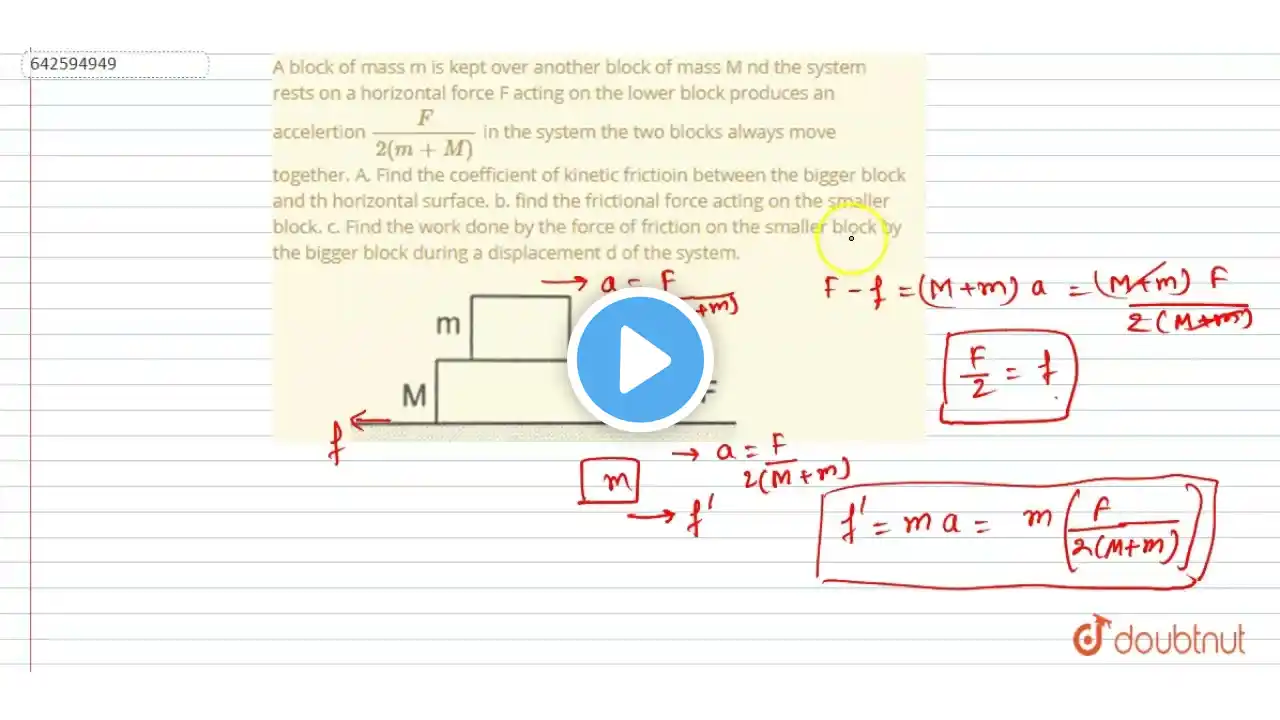 642594949
A block of mass m is kept over another block of mass M nd the system
rests on a horizontal force F acting on the lower block produces an
accelertion F/2(m + M) in the system the two blocks always move
together. A. Find the coefficient of kinetic frictioin between the bigger block
and th horizontal surface. b. find the frictional force acting on the smaller
block. c. Find the work done by the force of friction on the smaller block by
the bigger block during a displacement d of the system.
→ a = F
+m)
F - f = (M+m) a = (M+m) F / 2(M+m)
m
F/2 = f
M
F
f
→ a = F / 2(M+m)
m
→ f'
f' = m a = m (F / 2(M+m))
doubtnut